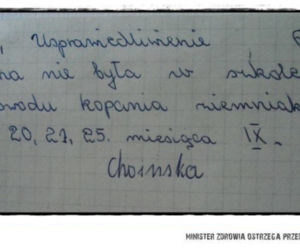 , Usprawiedliwienie
na nie była w szkole
owodu kopania ziemniak
20, 21, 25. miesiąca IX.
Chosińska
MINISTER ZDROWIA OSTRZEGA PRZE